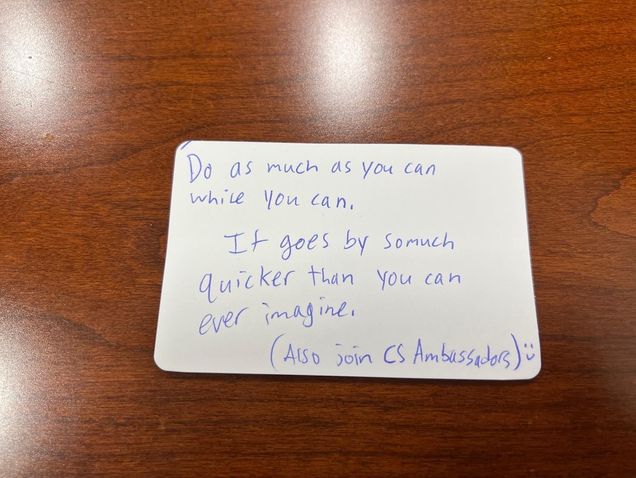 Do as much as you can
while you can.
It goes by somuch
quicker than you can
ever imagine.
(Also join CS Ambassadors) :)